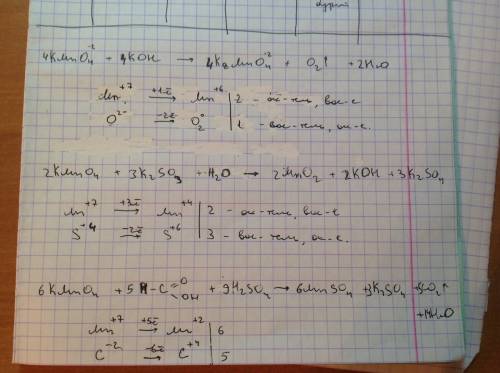 4KMnO₄⁻² + 4KOH → 4K₂MnO₄⁻² + O₂↑ + 2H₂O
Mn⁺⁷ +1ē→ Mn⁺⁶ | 2 - ок-тель, вос-е
O²⁻ -2ē→ O₂⁰ | 1 - вос-тель, ок-е.
2KMnO₄ + 3K₂SO₃ + H₂O → 2MnO₂ + 2KOH + 3K₂SO₄
Mn⁺⁷ +3ē→ Mn⁺⁴ | 2 - ок-тель, вос-е
S⁺⁴ -2ē→ S⁺⁶ | 3 - вос-тель, ок-е.
6KMnO₄ + 5H-C=O OH + 9H₂SO₄ → 6MnSO₄ + 3K₂SO₄ + 5CO₂↑
+14H₂O
Mn⁺⁷ +5ē→ Mn⁺² | 6
C⁻² -6ē→ C⁺⁴ | 5